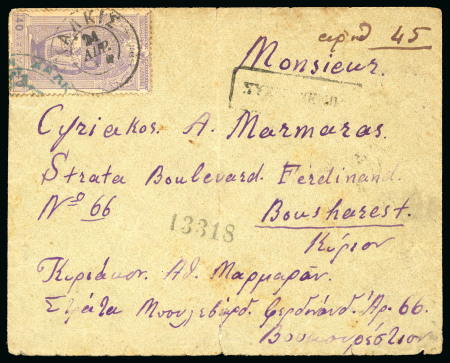 40
ΧΑΛΚΙΣ
24
ΑΠΡ.
αριθ 45
Monsieur.
ΣΥΣΤΗΜΕΝΟΝ
Cyriakos. A. Marmaras.
Strata Boulevard Ferdinand.
Nº 66
Bousharest.
13318
Κύριον
Κυριάκον. Αθ. Μαρμαράν.
Στράτα Μπουλεβάρδ. Φερδινάνδ. Άρ. 66.
Βουκουρέστιον